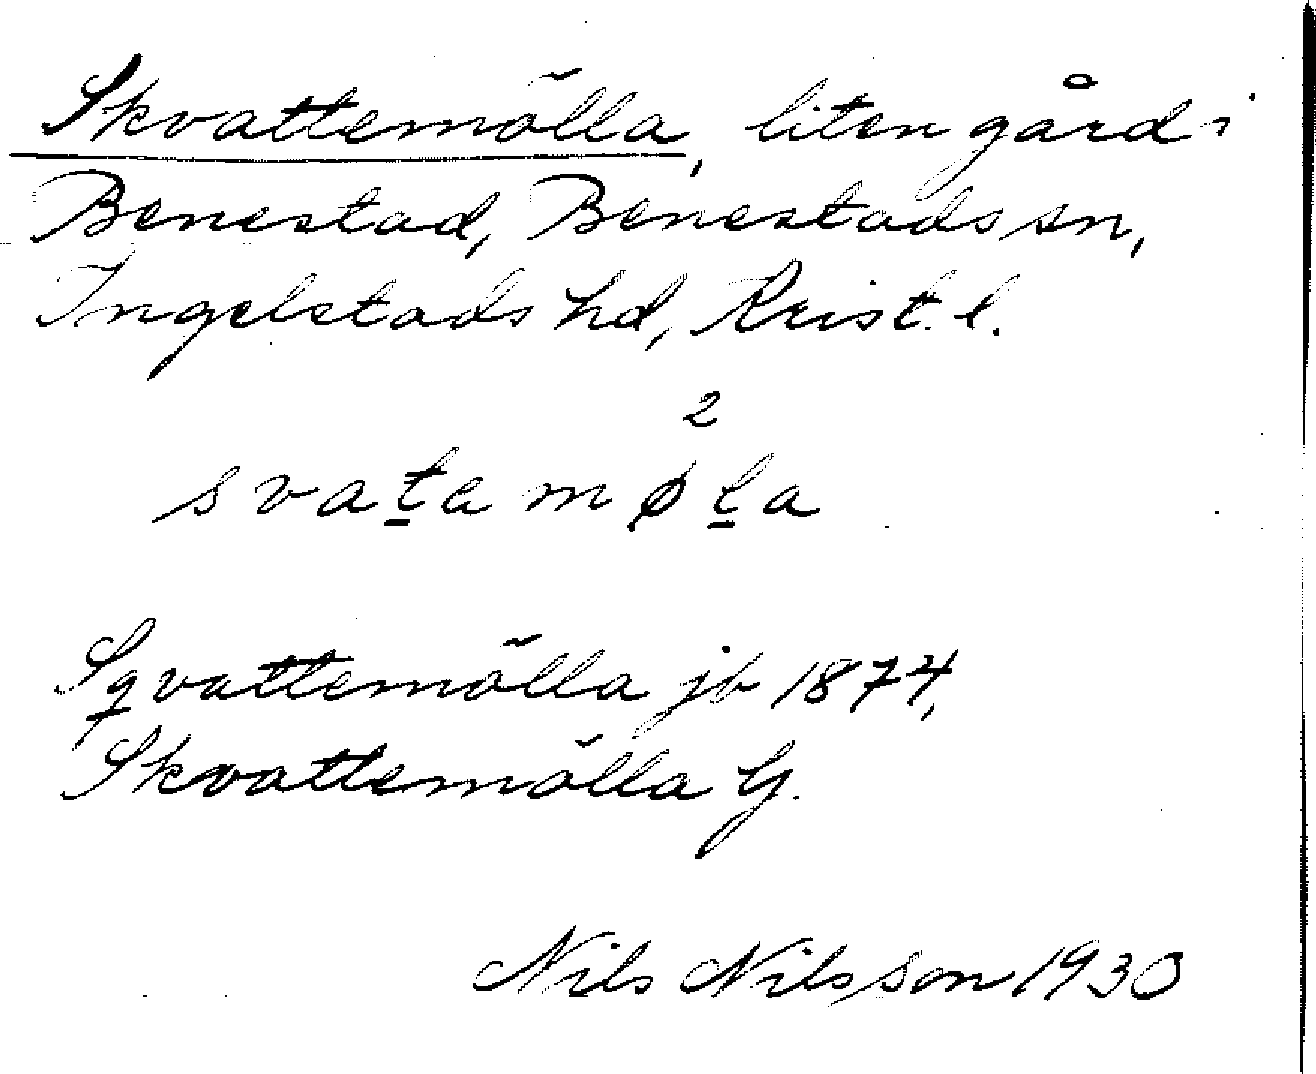 Skvattemölla, liten gård i
Benestad, Benestads sn,
Ingelstads hd, Krist. l.
2
svat̲a møl̲a
Sqvattemölla jb 1874,
Skvattemölla G.
Nils Nilsson 1930